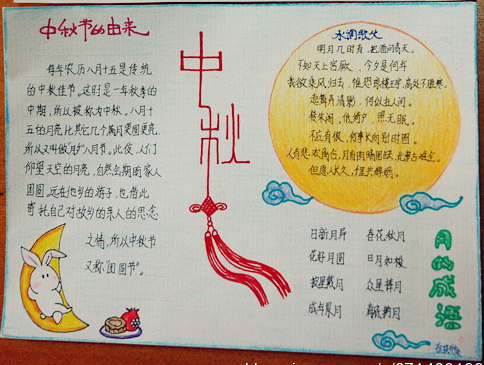 中秋节的由来
每年农历八月十五是传统
的中秋佳节。这时是一年秋季的
中期,所以被称为中秋。八月十
五的月亮比其它几个满月更圆更亮,
所以又叫做月夕八月节。此夜,人们
仰望天空的月亮,自然会期盼家人
团圆,远在他乡的游子,也借此
寄托自己对故乡的亲人的思念
之情,所以中秋节
又称"团圆节"。
中秋
水调歌头
明月几时有,把酒问青天。
不知天上宫阙,今夕是何年
我欲乘风归去,惟恐琼楼玉宇,高处不胜寒.
起舞弄清影,何似在人间。
转朱阁,低绮户,照无眠。
不应有恨,何事长向别时圆
人有悲欢离合,月有阴晴圆缺,此事古难全。
但愿人长久,千里共婵娟。
月的成语
日新月异 春花秋月
花好月圆 日月如梭
披星戴月 众星捧月
成年累月 海底捞月